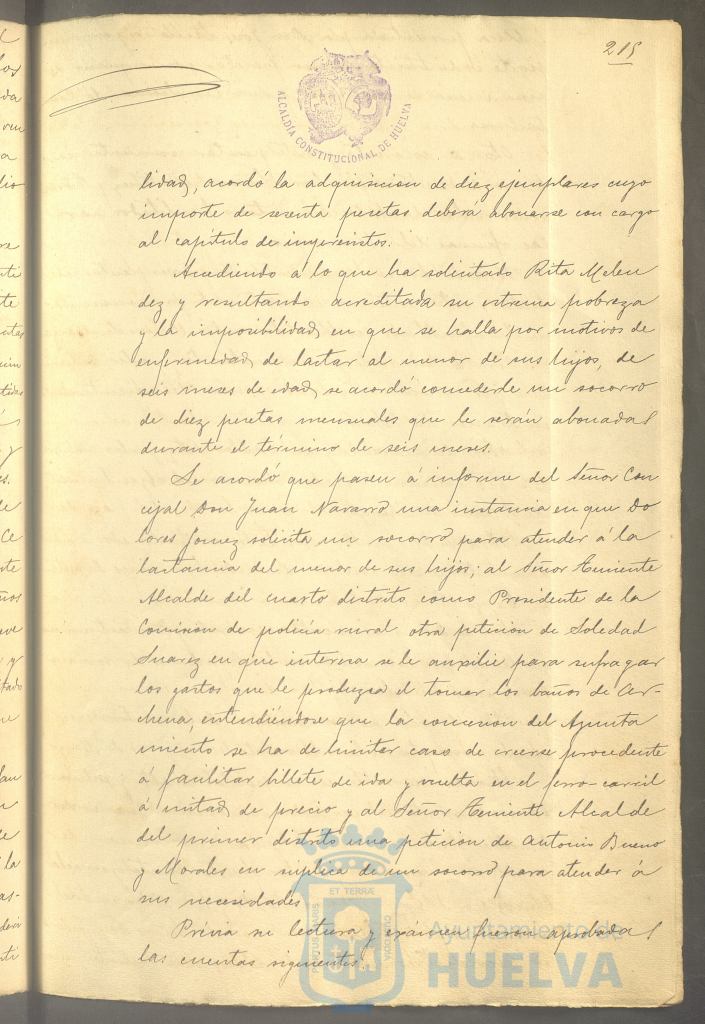 215
ALCALDÍA CONSTITUCIONAL DE HUELVA
lidad, acordó la adquisicion de diez ejemplares cuyo
importe de sesenta pesetas deberá abonarse con cargo
al capitulo de imprevistos.
Accediendo a lo que ha solicitado Rita Melen
dez y resultando acreditada su estrema pobreza
y la imposibilidad en que se halla por motivos de
enfermedad de lactar al menor de sus hijos, de
seis meses de edad, se acordó concederle un socorro
de diez pesetas mensuales que le serán abonadas
durante el término de seis meses.
Se acordó que pasen á informe del Señor Con
cejal Don Juan Navarro una instancia en que Do
lores Gomez solicita un socorro para atender á la
lactancia del menor de sus hijos; al Señor Teniente
Alcalde del cuarto distrito como Presidente de la
Comision de policía rural otra peticion de Soledad
Suarez en que interesa se le auxilie para sufragar
los gastos que le produzca el tomar los baños de Ar-
chena, entendiéndose que la concesion del Ayunta
miento se ha de limitar caso de creerse procedente
á facilitar billete de ida y vuelta en el ferro-carril
á mitad de precio y al Señor Teniente Alcalde
del primer distrito una peticion de Antonio Bueno
y Morales en súplica de un socorro para atender á
sus necesidades
Prévia su lectura y exámen fueron aprobadas
las cuentas siguientes.
PORTUS MARIS ET TERRÆ CUSTODIA
Ayuntamiento de
HUELVA